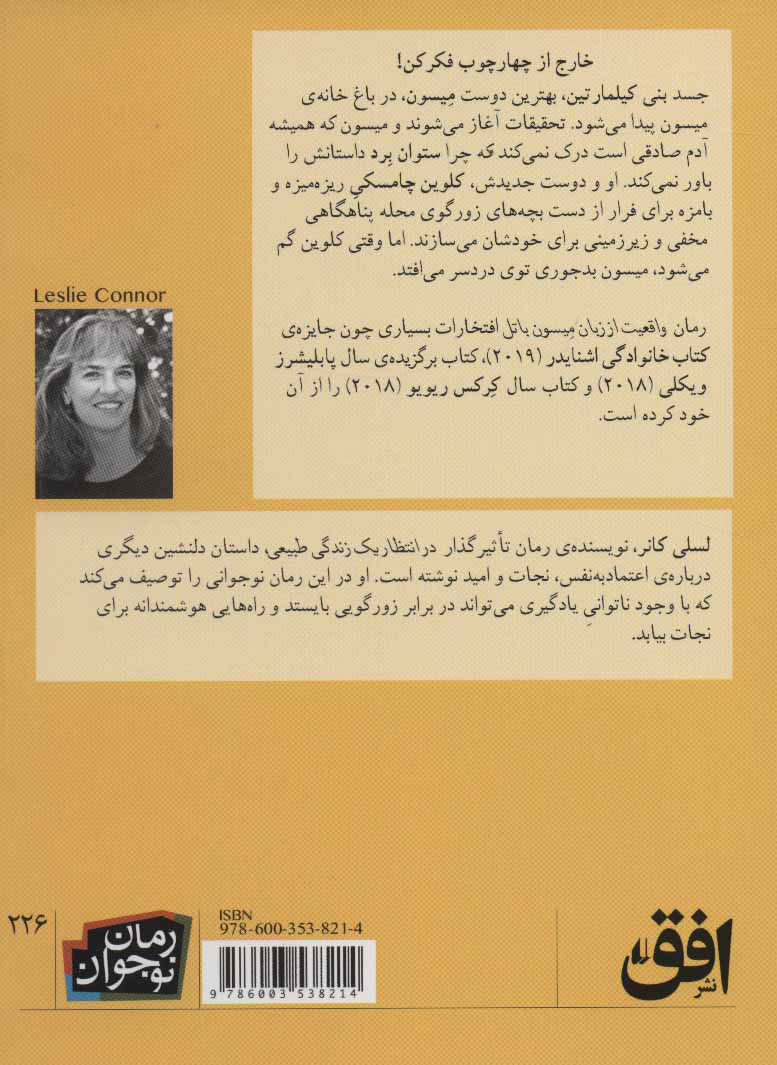 خارج از چهارچوب فکر کن!
جسد بنی کیلمارتین، بهترین دوست مِیسون، در باغ خانه‌ی
میسون پیدا می‌شود. تحقیقات آغاز می‌شوند و میسون که همیشه
آدم صادقی است درک نمی‌کند که چرا ستوان بِرد داستانش را
باور نمی‌کند. او و دوست جدیدش، کلوین چامسکیِ ریزه‌میزه و
بامزه برای فرار از دست بچه‌های زورگوی محله پناهگاهی
مخفی و زیرزمینی برای خودشان می‌سازند. اما وقتی کلوین گم
می‌شود، میسون بدجوری توی دردسر می‌افتد.
رمان واقعیت از زبان مِیسون باتل افتخارات بسیاری چون جایزه‌ی
کتاب خانوادگی اشنایدر (۲۰۱۹)، کتاب برگزیده‌ی سال پابلیشرز
ویکلی (۲۰۱۸) و کتاب سال کِرکس ریویو (۲۰۱۸) را از آن
خود کرده است.
Leslie Connor
لسلی کانر، نویسنده‌ی رمان تأثیرگذار در انتظار یک زندگی طبیعی، داستان دلنشین دیگری
درباره‌ی اعتمادبه‌نفس، نجات و امید نوشته است. او در این رمان نوجوانی را توصیف می‌کند
که با وجود ناتوانیِ یادگیری می‌تواند در برابر زورگویی بایستد و راه‌هایی هوشمندانه برای
نجات بیابد.
نشر افق
ISBN
978-600-353-821-4
9 786003 538214
رمان
نوجوان
۲۲۶